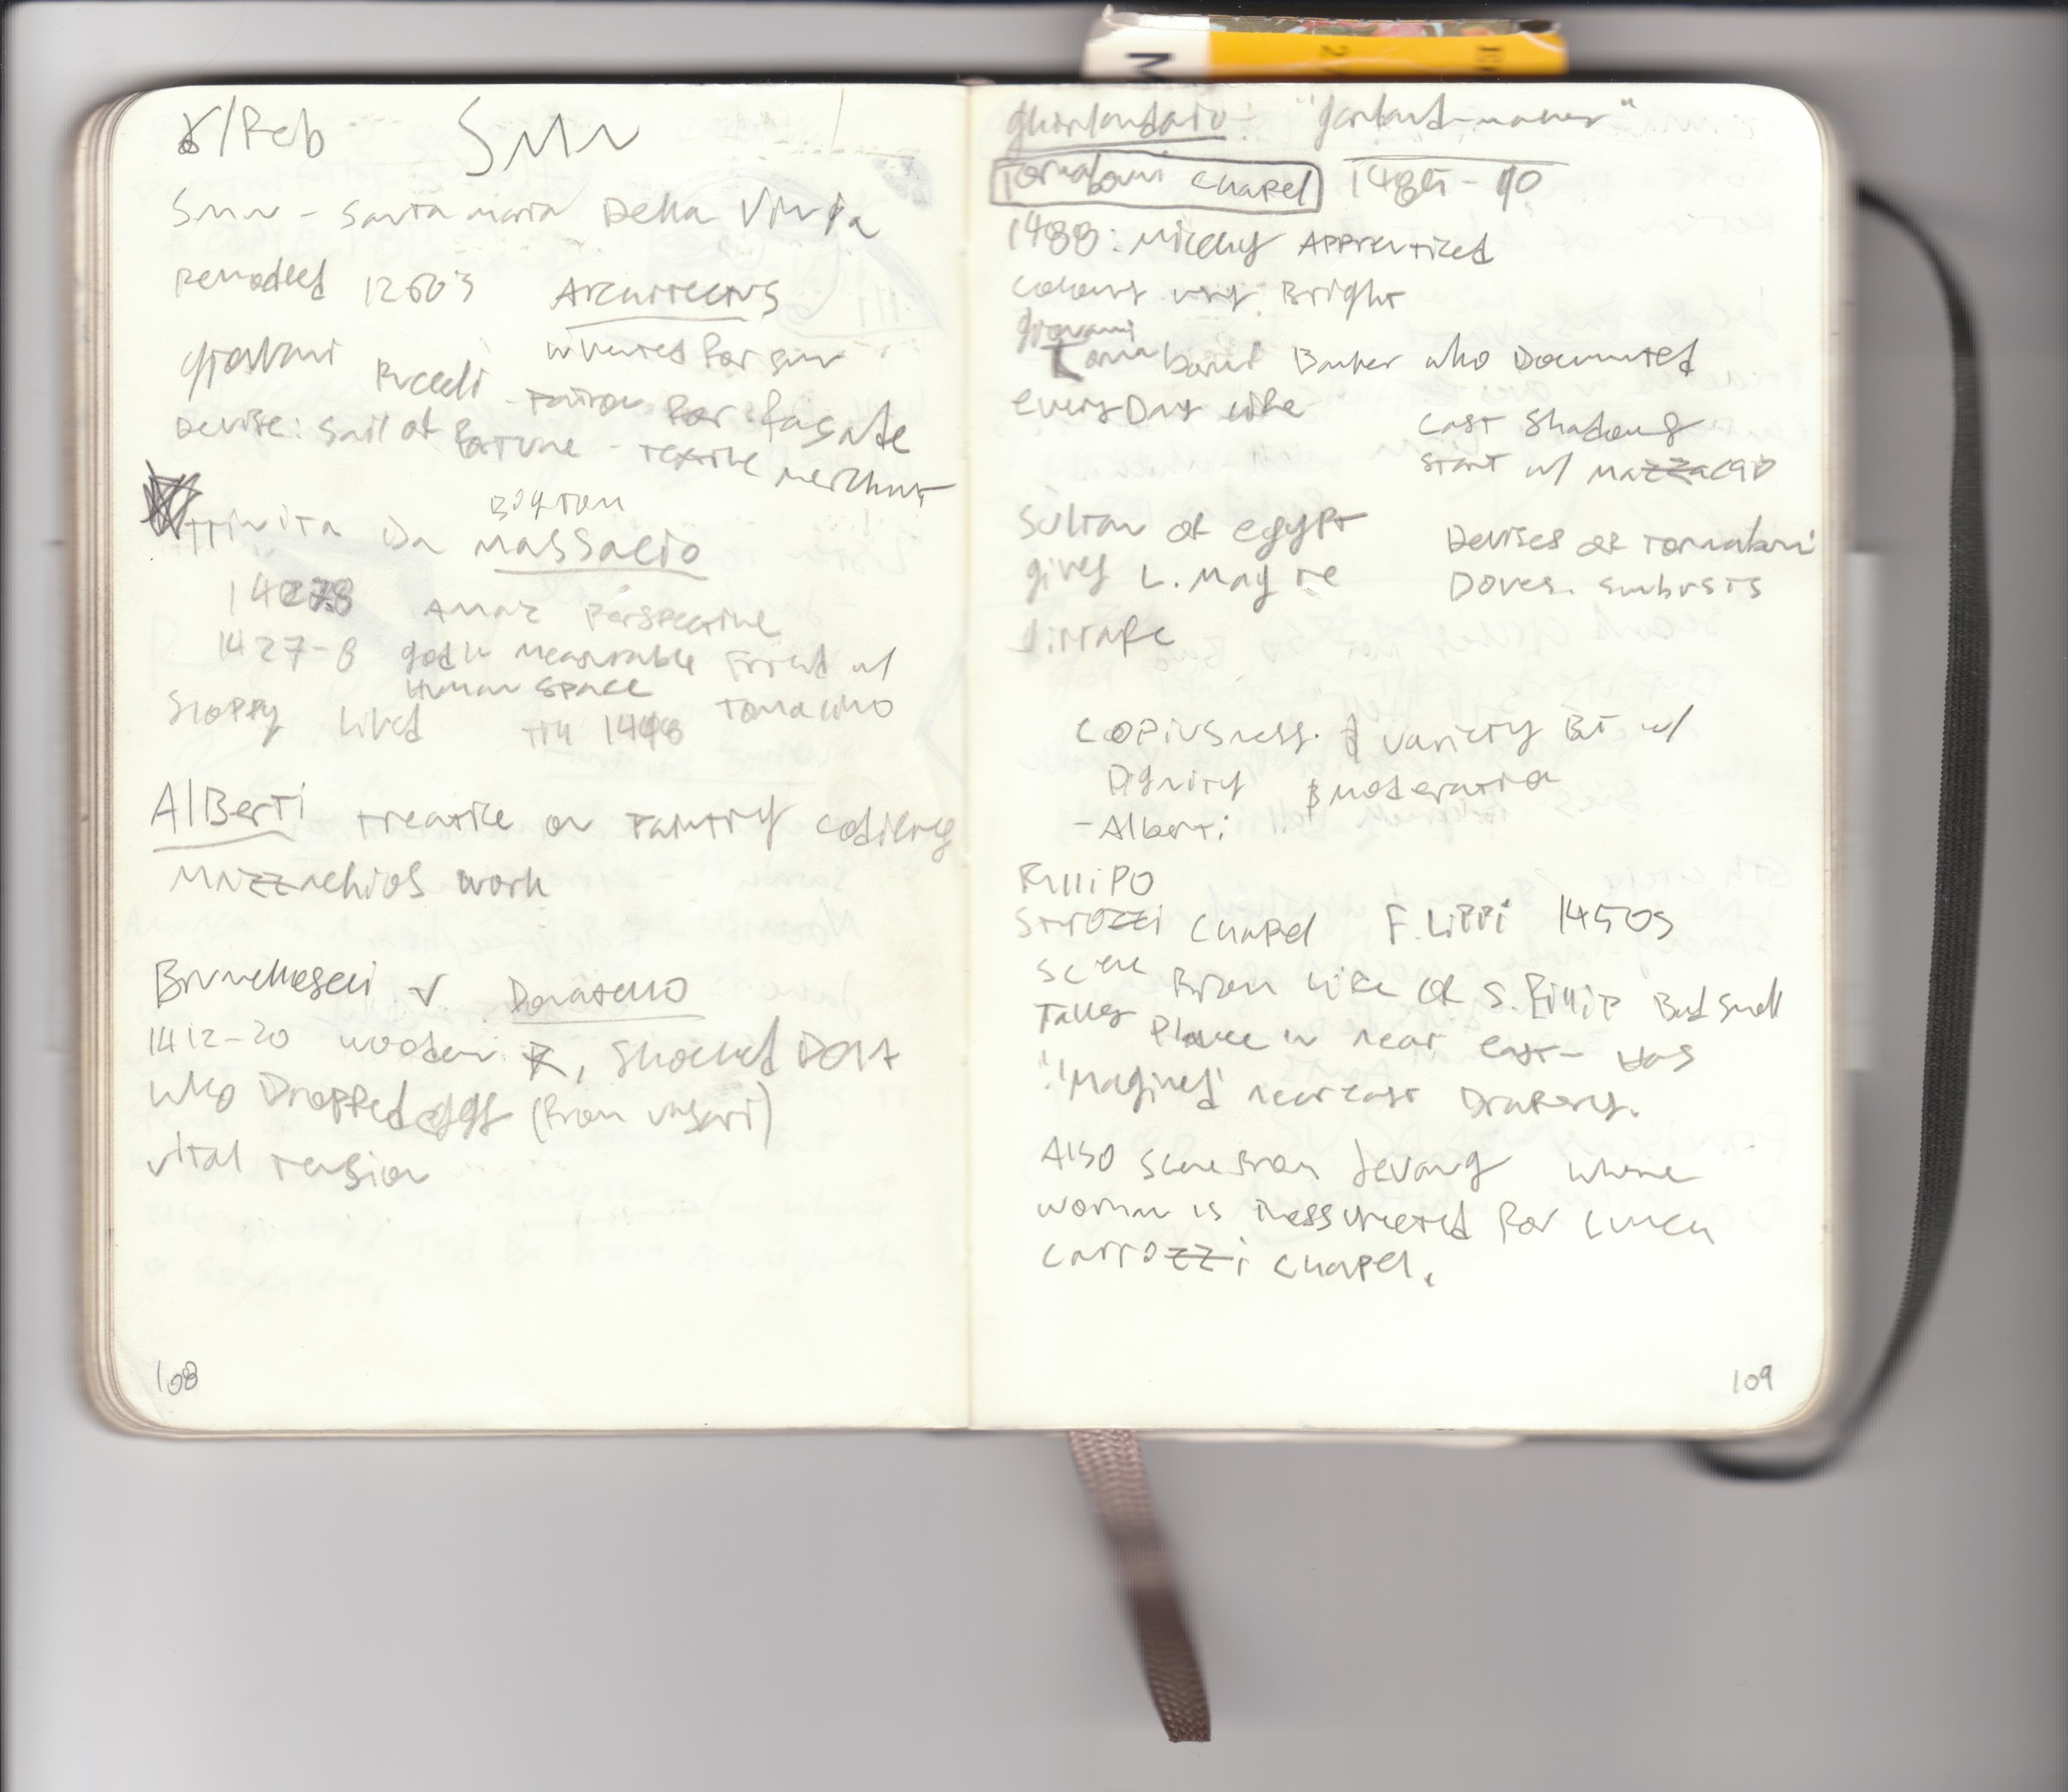 8/Feb SMN
SMN - Santa Maria Della
Remodled 1200's Architectus
Giovani Rucceli
Patron for fasate
Devise: Sail of Fortune - Textile merchant
Trinita Da Massacio
1427-8
Amaz Perspective
1427-8 god in measurable Friend w/
Human space
Sloppy Lived till
Alberti treatise on Painting
Mazzachios work
Brunelleseci v. Donatello
1412-20 wooden, Shocked Dona
who Dropped eggs (from Vasari)
vital tension
108
Ghirlandaio - "garland-maker"
Tornaboni Chapel 1485-90
1488: Apprenticed
Colours very Bright
Giovanni
Tornaboni Banker who Documented
everyDay life
cast Shadows
start w/ Mazzacio
Sultan of egypt
gives L. Mag
giraffe
Devises of Tornaboni
Doves. sunbusts
Copiusness. & variety BT w/
Dignity & moderation
- Alberti
Fillipo
Strozzi Chapel F. Lippi 1450s
Scene From Life of S. Fillip
Takes Place in near east - has
'imagined' near east Drapery.
Also scene from where
woman is for
Carrozzi chapel.
109